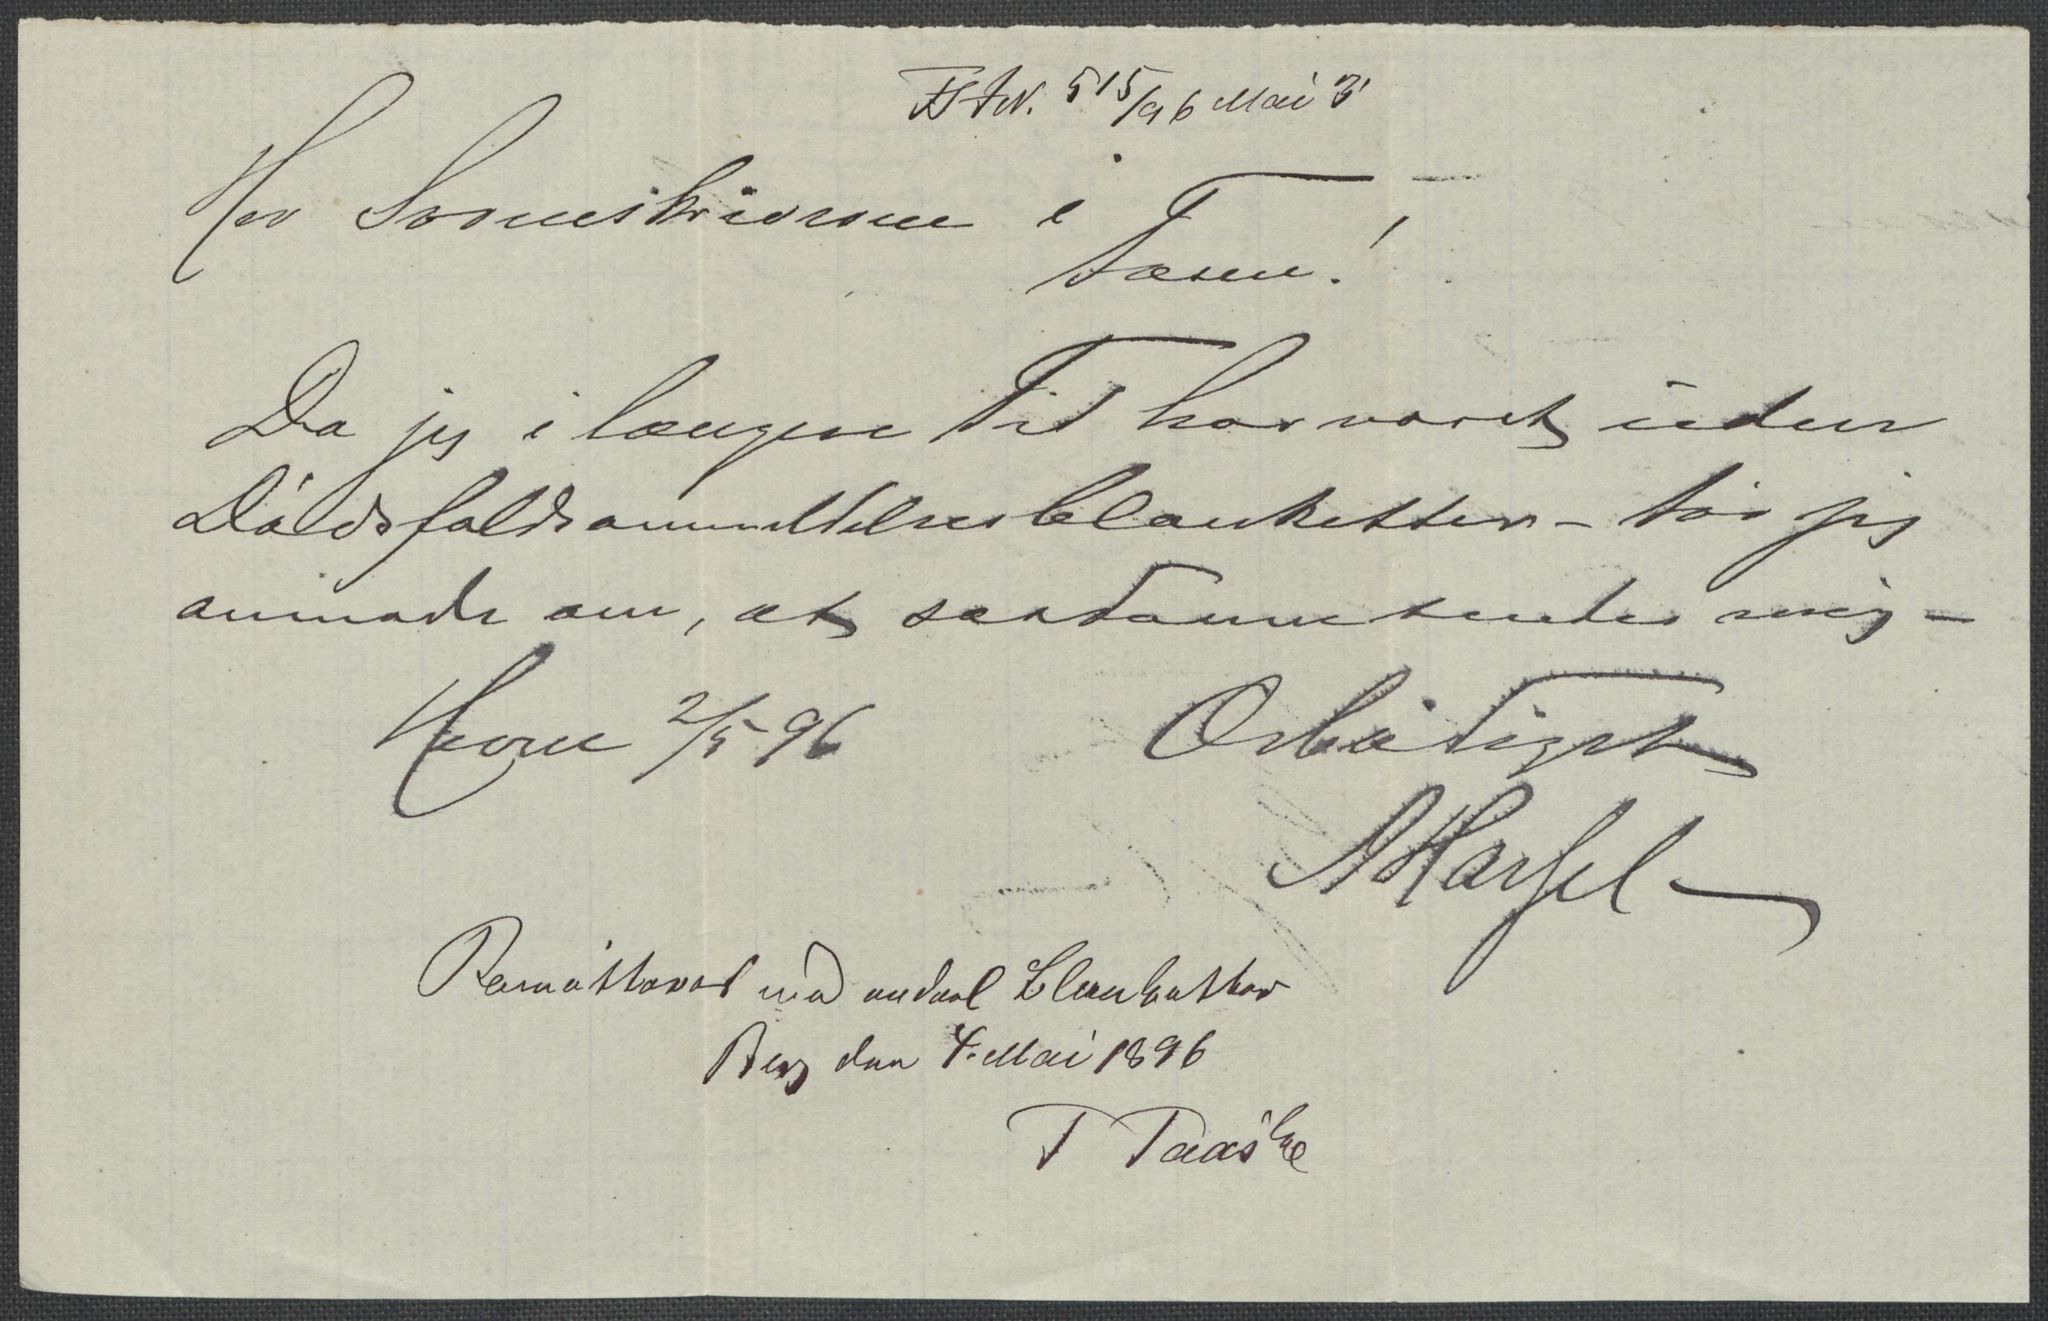 515/96 Mai 3
Hr Sorenskriveren i
Fosen!
Da jeg i længere Tid har været uden
Dödsfaldsanmeldelsesblanketter – tør jeg
anmode om, at saadanne sendes mig –
Hevne 2/5 96 Ærbödigst
A Harsel
Remitteres med endel Blanketter
Berg den 4. Mai 1896
T Taaske